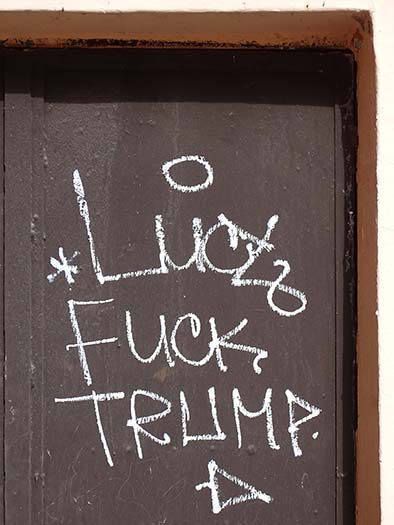 *Lucas
FUCK
TRUMP.